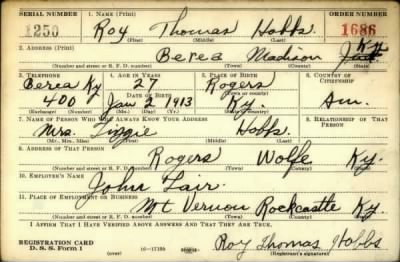 SERIAL NUMBER 1. NAME (Print) ORDER NUMBER
1250 Roy Thomas Hobbs 1686
(First) (Middle) (Last)
2. ADDRESS (Print)
Berea Madison Ky
(Number and street or R. F. D. number) (Town) (County) (State)
3. TELEPHONE 4. AGE IN YEARS 5. PLACE OF BIRTH 6. COUNTRY OF CITIZENSHIP
Berea Ky 27 Rogers
400 Jan 2 1913 Ky. Am.
(Exchange) (Number) (Mo.) (Day) (Yr.) (State or country)
7. NAME OF PERSON WHO WILL ALWAYS KNOW YOUR ADDRESS 8. RELATIONSHIP OF THAT PERSON
Mrs. Lizzie Hobbs
(Mr., Mrs., Miss) (First) (Middle) (Last)
9. ADDRESS OF THAT PERSON
Rogers Wolfe Ky.
(Number and street or R. F. D. number) (Town) (County) (State)
10. EMPLOYER'S NAME
John Lair.
11. PLACE OF EMPLOYMENT OR BUSINESS
Mt Vernon Rockcastle Ky.
(Number and street or R. F. D. number) (Town) (County) (State)
I AFFIRM THAT I HAVE VERIFIED ABOVE ANSWERS AND THAT THEY ARE TRUE.
REGISTRATION CARD
D. S. S. Form 1 (over) 16-17105 Roy Thomas Hobbs
(Registrant's signature)